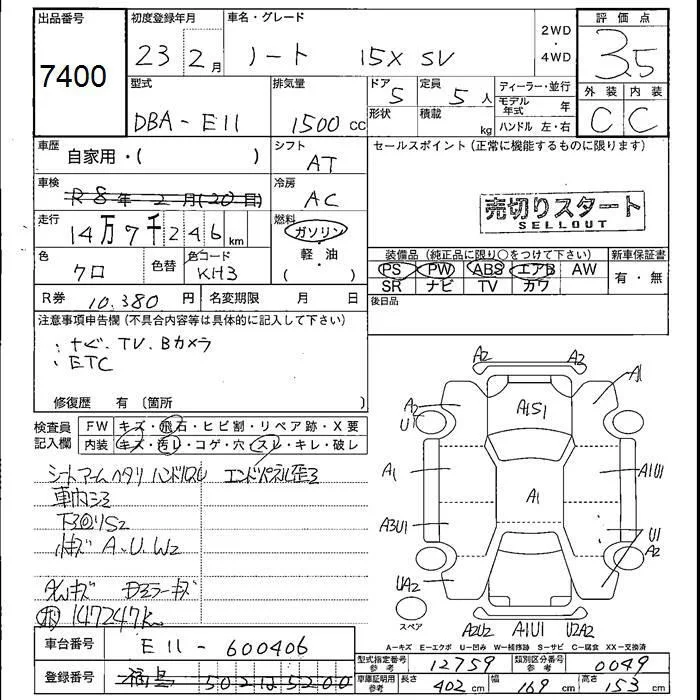 出品番号 初度登録年月 車名・グレード 2WD・4WD 評価点
7400 23 2月 ノート 15X SV 3.5
型式 排気量 ドア 定員 ディーラー・並行 外装 内装
DBA-E11 1500cc 5 5人 モデル年式 年 C C
形状 積載 kg ハンドル 左・右
車歴 自家用・( ) シフト AT セールスポイント(正常に機能するものに限ります)
車検 R8年2月(20日) 冷房 AC
売切りスタート
SELLOUT
走行 14万7千246km 燃料 ガソリン 軽・油 ( )
色 クロ 色替 色コード KH3
装備品(純正品に限り○をつけて下さい) 新車保証書
PS PW ABS エアB AW 有・無
SR ナビ TV カワ
R券 10,380円 名変期限 月 日 後日品
注意事項申告欄(不具合内容等は具体的に記入して下さい)
ナビ、TV、Bカメラ
ETC
修復歴 有 〔箇所
検査員記入欄 FW キズ・飛石・ヒビ割・リペア跡・X要
内装 キズ・汚レ・コゲ・穴・スレ・キレ・破レ
A2 A2
A1
A2
U1
A1S1
A1 A1 A1U1
A3U1 U1
A2
UA2
スペア A2U2 A1U1 U2A2
エンドパネル歪ミ
A.U.W2
147247k
A-キズ E-エクボ U-凹み W-補修跡 S-サビ C-腐食 XX-交換済
車台番号 E11-600406
型式指定番号 参考 12759 類別区分番号 参考 0049
登録番号 福島 502 ほ 5200
車庫証明用 参考 長さ 402cm 幅 169cm 高さ 153cm